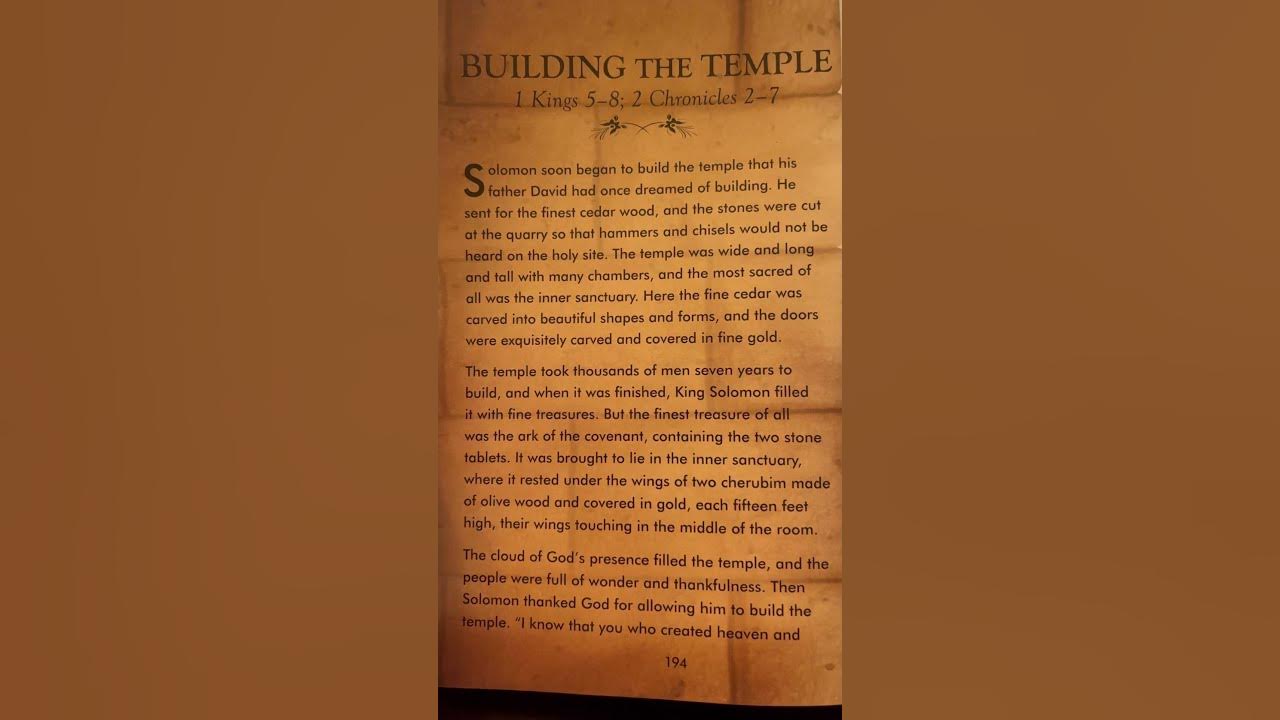 BUILDING THE TEMPLE
1 Kings 5–8; 2 Chronicles 2–7
Solomon soon began to build the temple that his
father David had once dreamed of building. He
sent for the finest cedar wood, and the stones were cut
at the quarry so that hammers and chisels would not be
heard on the holy site. The temple was wide and long
and tall with many chambers, and the most sacred of
all was the inner sanctuary. Here the fine cedar was
carved into beautiful shapes and forms, and the doors
were exquisitely carved and covered in fine gold.
The temple took thousands of men seven years to
build, and when it was finished, King Solomon filled
it with fine treasures. But the finest treasure of all
was the ark of the covenant, containing the two stone
tablets. It was brought to lie in the inner sanctuary,
where it rested under the wings of two cherubim made
of olive wood and covered in gold, each fifteen feet
high, their wings touching in the middle of the room.
The cloud of God's presence filled the temple, and the
people were full of wonder and thankfulness. Then
Solomon thanked God for allowing him to build the
temple. "I know that you who created heaven and
194